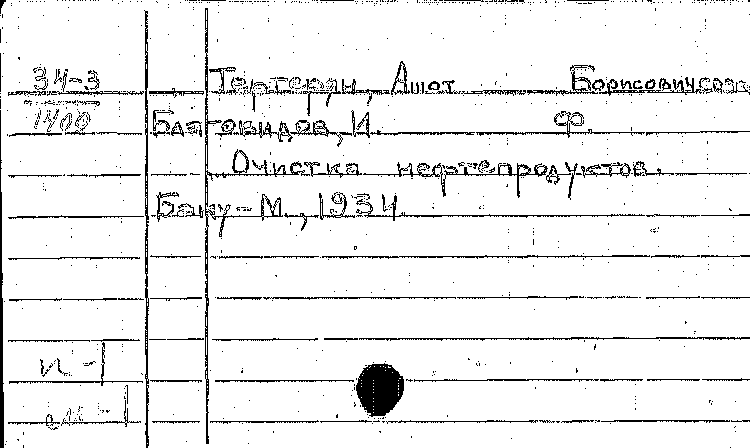 34-3 Тертерян, Ашот Борисович
1400 Благовидов, И. Ф.
Очистка нефтепродуктов.
Баку-М., 1934.